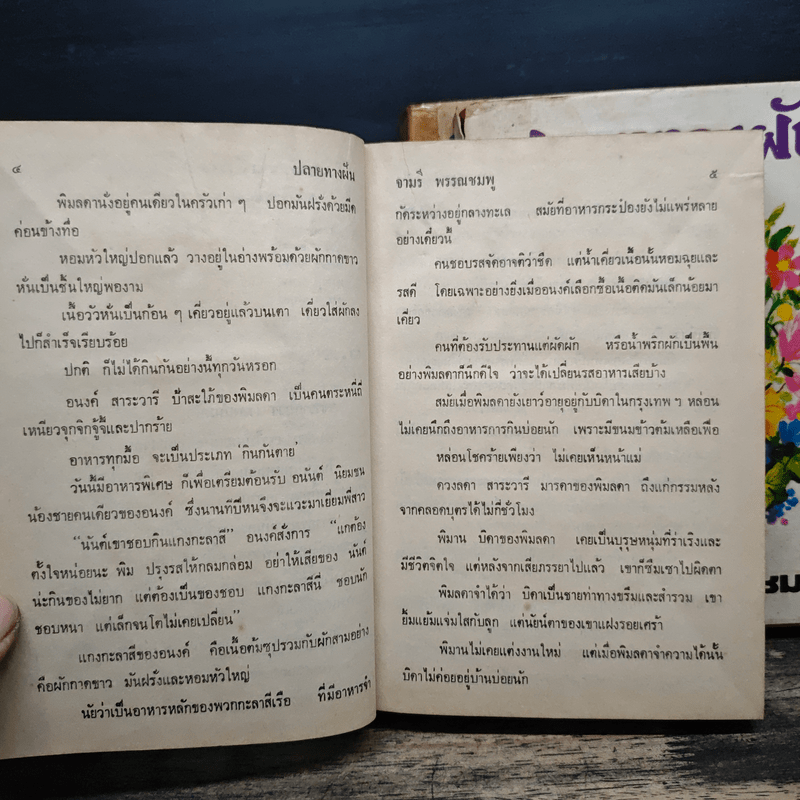 ๔ ปลายทางฝัน
พิมลดานั่งอยู่คนเดียวในครัวเก่า ๆ ปอกมันฝรั่งด้วยมีด
ค่อนข้างทื่อ
หอมหัวใหญ่ปอกแล้ว วางอยู่ในอ่างพร้อมด้วยผักกาดขาว
หั่นเป็นชิ้นใหญ่พองาม
เนื้อวัวหั่นเป็นก้อน ๆ เคี่ยวอยู่แล้วบนเตา เดี๋ยวใส่ผักลง
ไปก็สำเร็จเรียบร้อย
ปกติ ก็ไม่ได้กินกันอย่างนี้ทุกวันหรอก
อนงค์ สาระวารี ป้าสะใภ้ของพิมลดา เป็นคนตระหนี่ถี่
เหนียวจุกจิกจู้จี้และปากร้าย
อาหารทุกมื้อ จะเป็นประเภท ‘กินกันตาย’
วันนี้มีอาหารพิเศษ ก็เพื่อเตรียมต้อนรับ อนันต์ นิยมชน
น้องชายคนเดียวของอนงค์ ซึ่งนานทีปีหนจึงจะแวะมาเยี่ยมพี่สาว
“นันต์เขาชอบกินแกงกะลาสี” อนงค์สั่งการ “แกต้อง
ตั้งใจหน่อยนะ พิม ปรุงรสให้กลมกล่อม อย่าให้เสียของ นันต์
น่ะกินของไม่ยาก แต่ต้องเป็นของชอบ แกงกะลาสีนี่ ชอบนัก
ชอบหนา แต่เล็กจนโตไม่เคยเปลี่ยน”
แกงกะลาสีของอนงค์ คือเนื้อต้มซุปรวมกับผักสามอย่าง
คือผักกาดขาว มันฝรั่งและหอมหัวใหญ่
นัยว่าเป็นอาหารหลักของพวกกะลาสีเรือ ที่มีอาหารจำ
จามรี พรรณชมพู ๕
กัดระหว่างอยู่กลางทะเล สมัยที่อาหารกระป๋องยังไม่แพร่หลาย
อย่างเดี๋ยวนี้
คนชอบรสจัดอาจติว่าชืด แต่น้ำเคี่ยวเนื้อนั้นหอมฉุยและ
รสดี โดยเฉพาะอย่างยิ่งเมื่ออนงค์เลือกซื้อเนื้อติดมันเล็กน้อยมา
เคี่ยว
คนที่ต้องรับประทานแต่ผัดผัก หรือน้ำพริกผักเป็นพื้น
อย่างพิมลดาก็นึกดีใจ ว่าจะได้เปลี่ยนรสอาหารเสียบ้าง
สมัยเมื่อพิมลดายังเยาว์อายุอยู่กับบิดาในกรุงเทพ ฯ หล่อน
ไม่เคยนึกถึงอาหารการกินบ่อยนัก เพราะมีขนมข้าวต้มเหลือเฟือ
หล่อนโชคร้ายเพียงว่า ไม่เคยเห็นหน้าแม่
ดวงลดา สาระวารี มารดาของพิมลดา ถึงแก่กรรมหลัง
จากคลอดบุตรได้ไม่กี่ชั่วโมง
พิมาน บิดาของพิมลดา เคยเป็นบุรุษหนุ่มที่ร่าเริงและ
มีชีวิตจิตใจ แต่หลังจากเสียภรรยาไปแล้ว เขาก็ซึมเซาไปผิดตา
พิมลดาจำได้ว่า บิดาเป็นชายท่าทางขรึมและสำรวม เขา
ยิ้มแย้มแจ่มใสกับลูก แต่นัยน์ตาของเขาแฝงรอยเศร้า
พิมานไม่เคยแต่งงานใหม่ แต่เมื่อพิมลดาจำความได้นั้น
บิดาไม่ค่อยอยู่บ้านบ่อยนัก